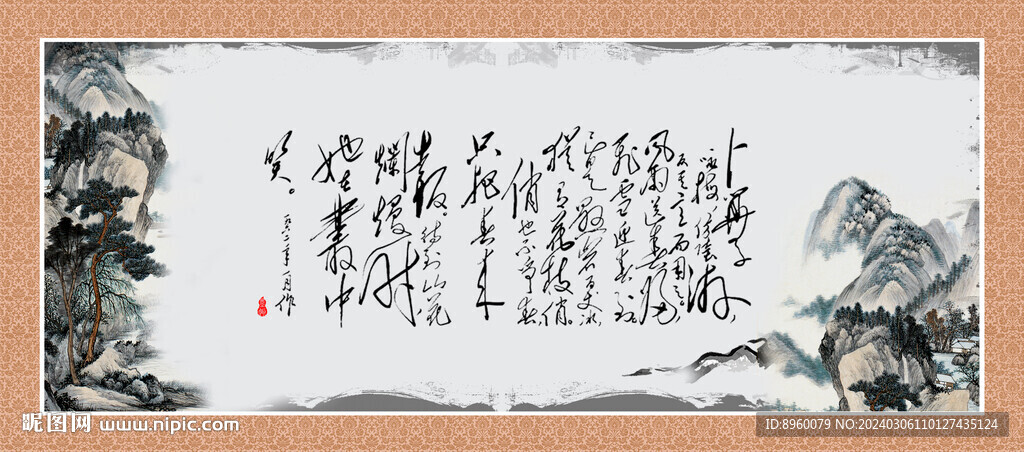 卜算子
咏梅 读陆游,
反其意而用之,
风雨送春归,
飛雪迎春到。
已是懸岩百丈冰
犹有花枝俏。
俏也不争春
只把春来
報。待到山花
爛熳时,
她在叢中
笑。
一九六二年一月作
昵图网 www.nipic.com
ID:8960079 NO:20240306110127435124